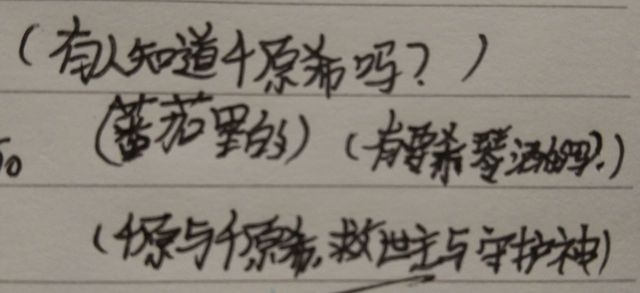 （有人知道千原希吗？）
（蕃茄里的）（有要希琴酒的吗？）
（千原与千原希，救世主与守护神）